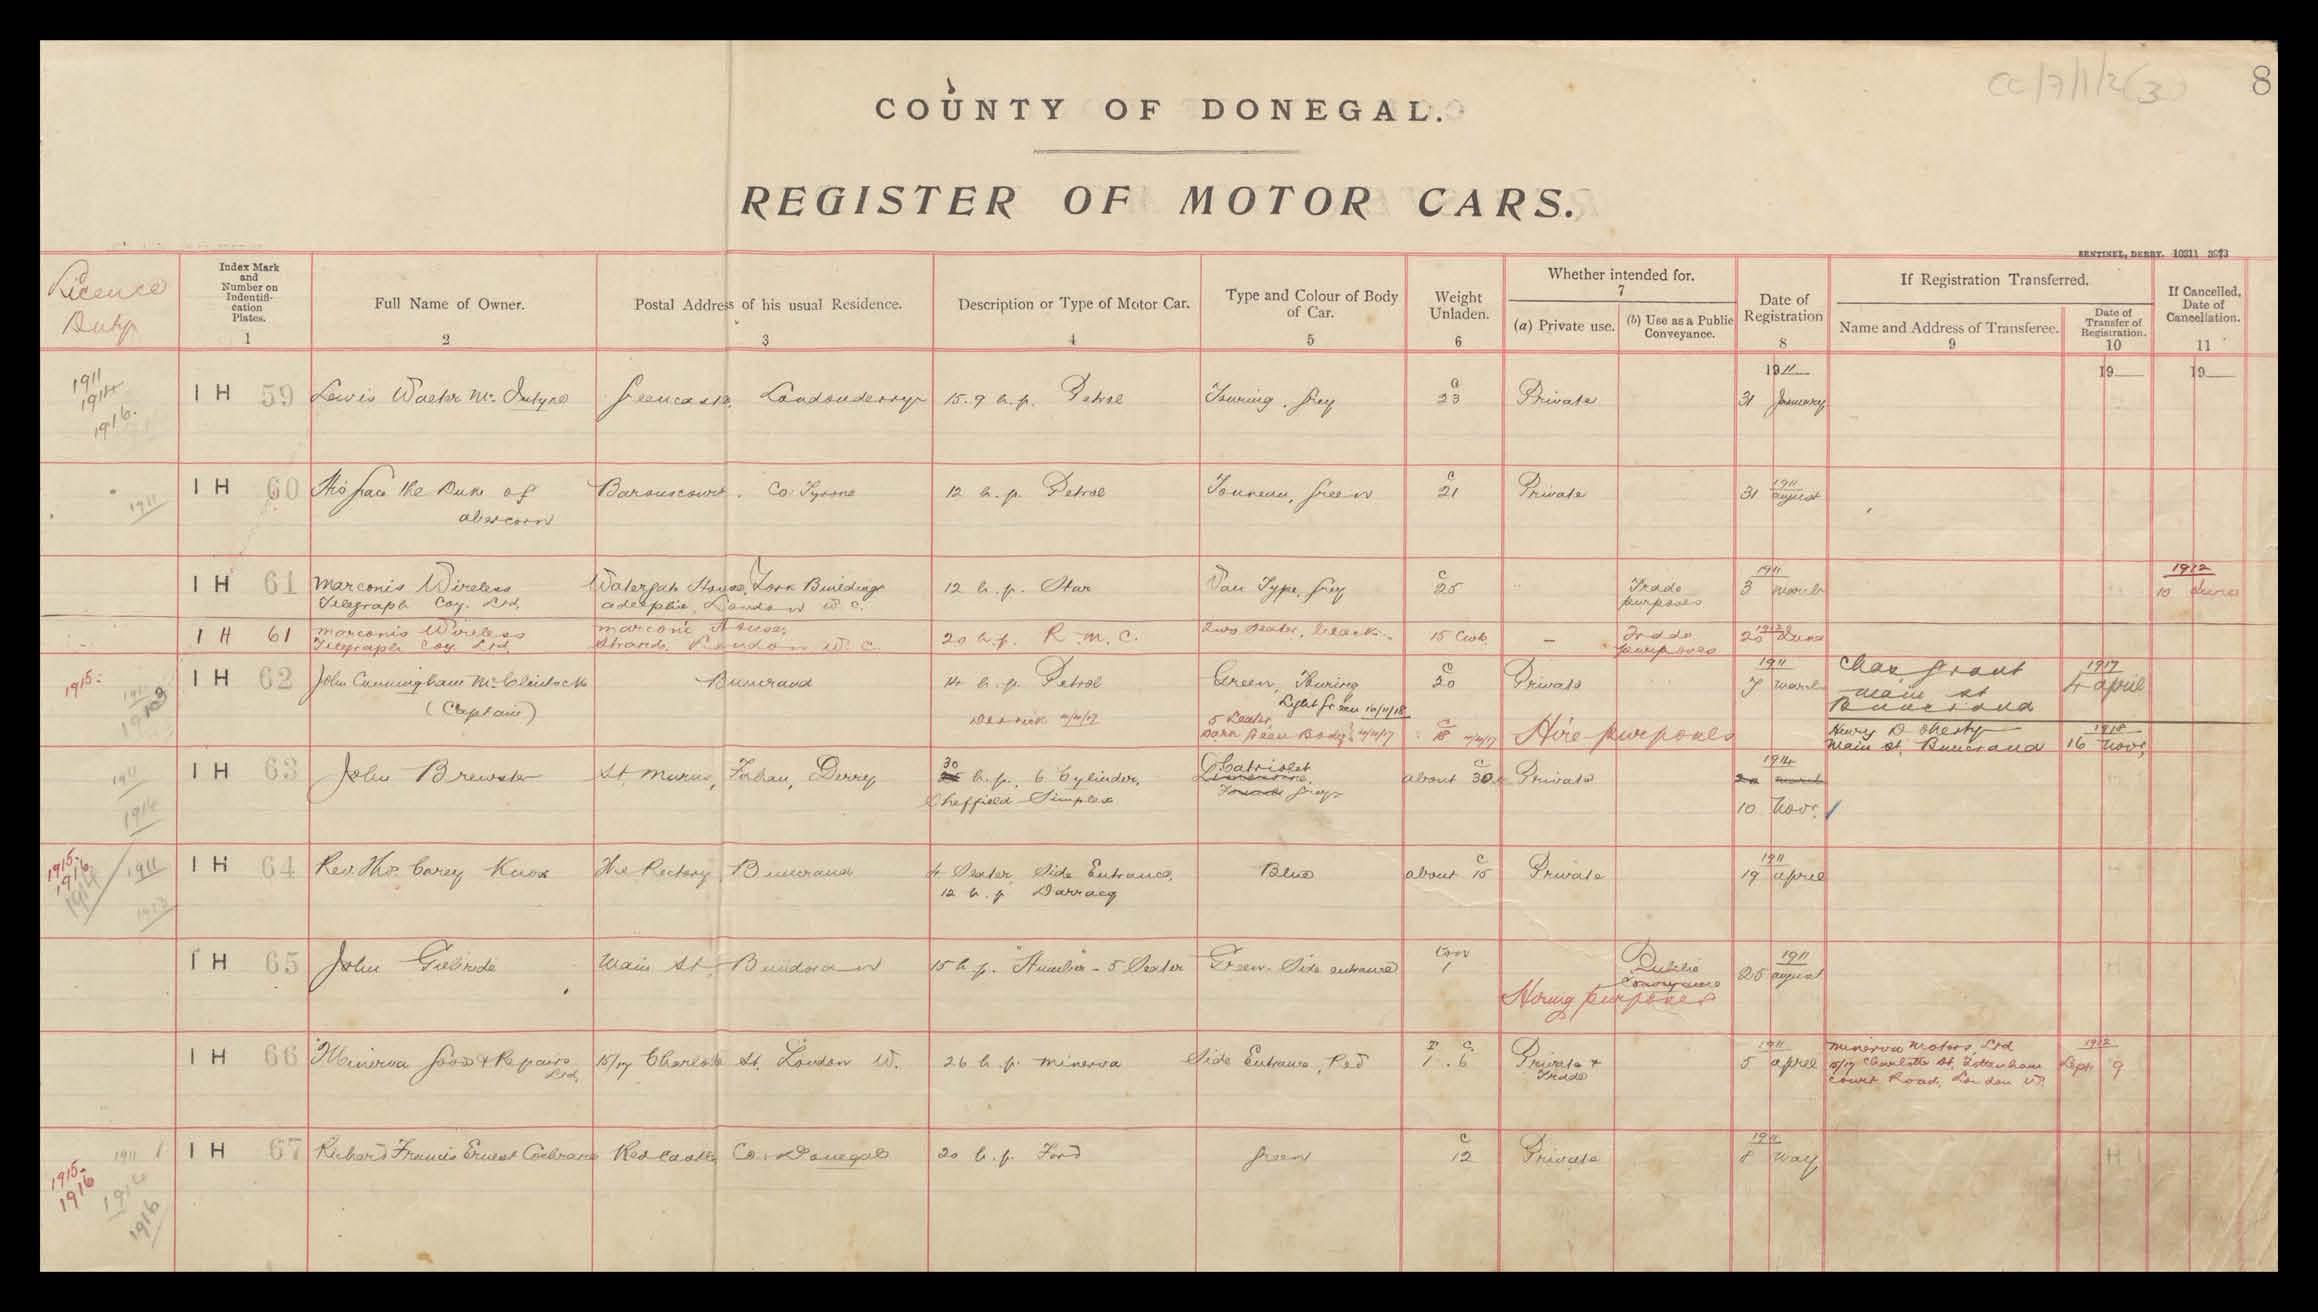 CC/7/1/2(3)
8
COUNTY OF DONEGAL.
REGISTER OF MOTOR CARS.
SENTINEL, DERRY. 10311 3673
Licence Duty
Index Mark and Number on Indentifi-cation Plates.
1
Full Name of Owner.
2
Postal Address of his usual Residence.
3
Description or Type of Motor Car.
4
Type and Colour of Body of Car.
5
Weight Unladen.
6
Whether intended for.
7
(a) Private use.
(b) Use as a Public Conveyance.
Date of Registration
8
If Registration Transferred.
Name and Address of Transferee.
9
Date of Transfer of Registration.
10
If Cancelled, Date of Cancellation.
11
1911 1914 1916.
IH 59 Lewis Walter McIntyre Greencastle, Londonderry 15.9 h.p. Petrol Touring, Grey C 23 Private 1911 31 January 19 19
1911
IH 60 His Grace the Duke of Abercorn Baronscourt, Co. Tyrone 12 h.p. Petrol Tonneau, Green C 21 Private 1911 31 August
IH 61 Marconis Wireless Telegraph Coy. Ltd. Watergate House, York Buildings Adelphi, London W.C. 12 h.p. Star Van Type, Grey C 25 Trade purposes 1911 3 March 1912 10 June
IH 61 Marconis Wireless Telegraph Coy. Ltd. Marconi House, Strand, London W.C. 20 h.p. R.M.C. Two Seater, black. 15 Cwt. – Trade purposes 1912 20 June
1915.
IH 62 John Cunningham McClintock (Captain) Buncrana 14 h.p. Petrol Green, Touring C 20 Private 1911 7 March Chas Grant Main St Buncrana 1917 4 April
Light Green 16/11/18
5 Seater, Dark Green Body C 18 Hire purposes Henry D Main St, Buncrana 1918 16 Novr.
1911 1914
IH 63 John Brewster St. Murus, Fahan, Derry 30 h.p. 6 Cylinder, Sheffield Simplex Cabriolet Limousine Grey about C 30 Private 1914 20 March 10 Novr.
1915. 1916 1914 1911
IH 64 Rev. Thos. Carey Knox The Rectory, Buncrana 4 Seater Side Entrance, 12 h.p. Darracq Blue about C 15 Private 1911 19 April
IH 65 John Gilbride Main St, Bundoran 15 h.p. "Humber" - 5 Seater Green. Side entrance Ton 1 Public Conveyance 1911 25 August
Hiring purposes
IH 66 Minerva Garage & Repairs Ltd. 15/17 Charlotte St. London W. 26 h.p. Minerva Side Entrance, Red T C 1 . 6 Private & Trade 1911 5 April Minerva Motors Ltd 15/17 Charlotte St, Tottenham Court Road, London W. 1912 Sept 9
1911 1915. 1916 1914 1916
IH 67 Richard Francis Ernest Cochrane Redcastle, Co. Donegal 20 h.p. Ford Green C 12 Private 1911 8 May